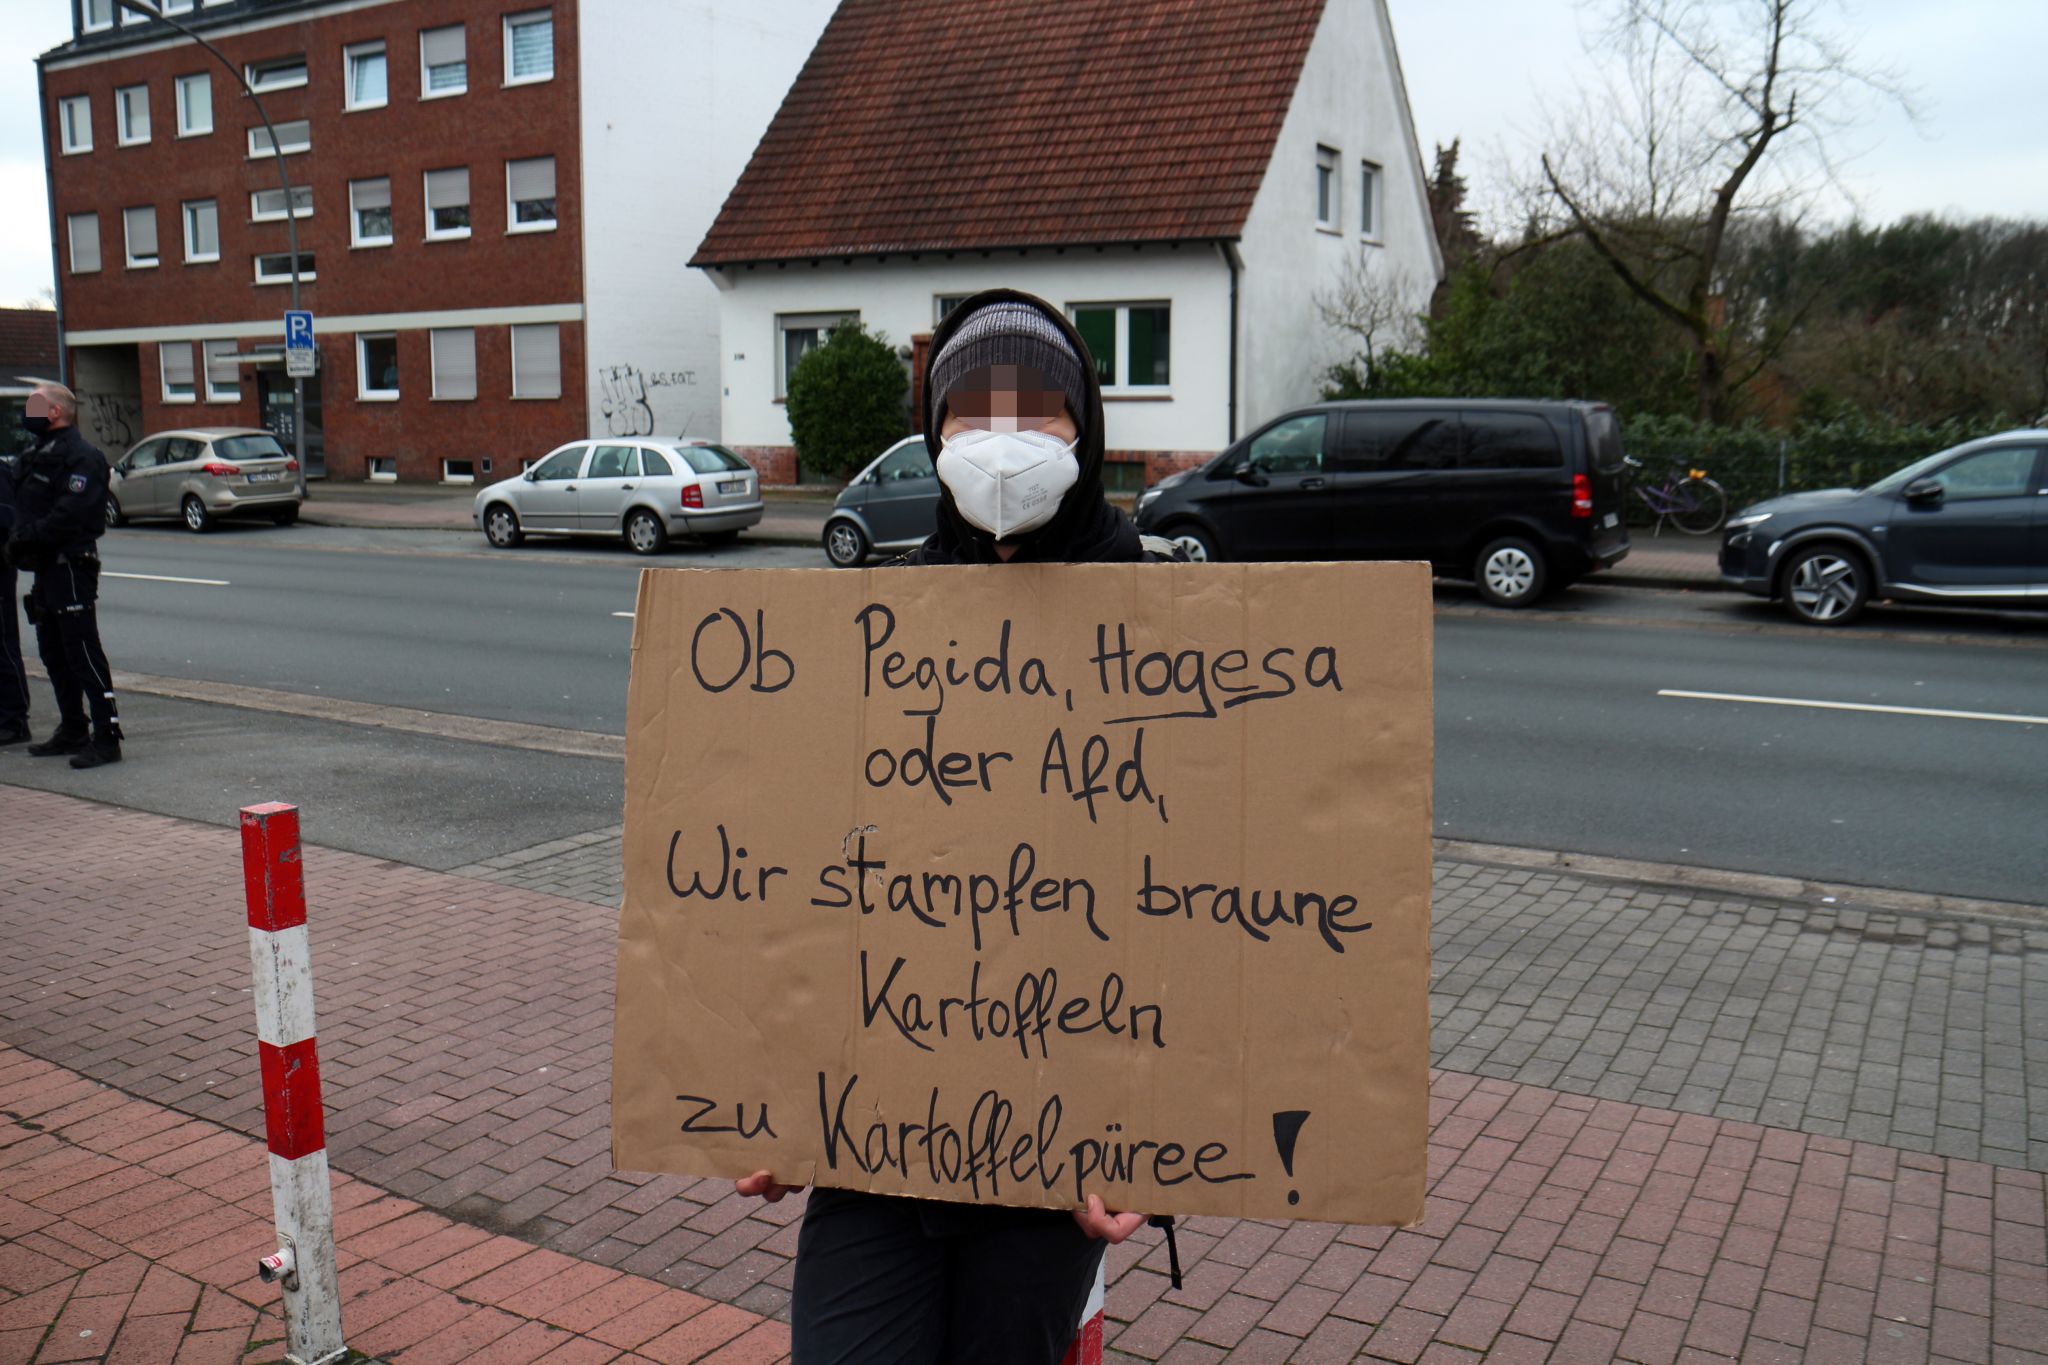 Ob Pegida, Hogesa
oder Afd,
Wir stampfen braune
Kartoffeln
zu Kartoffelpüree!
P
POLIZEI